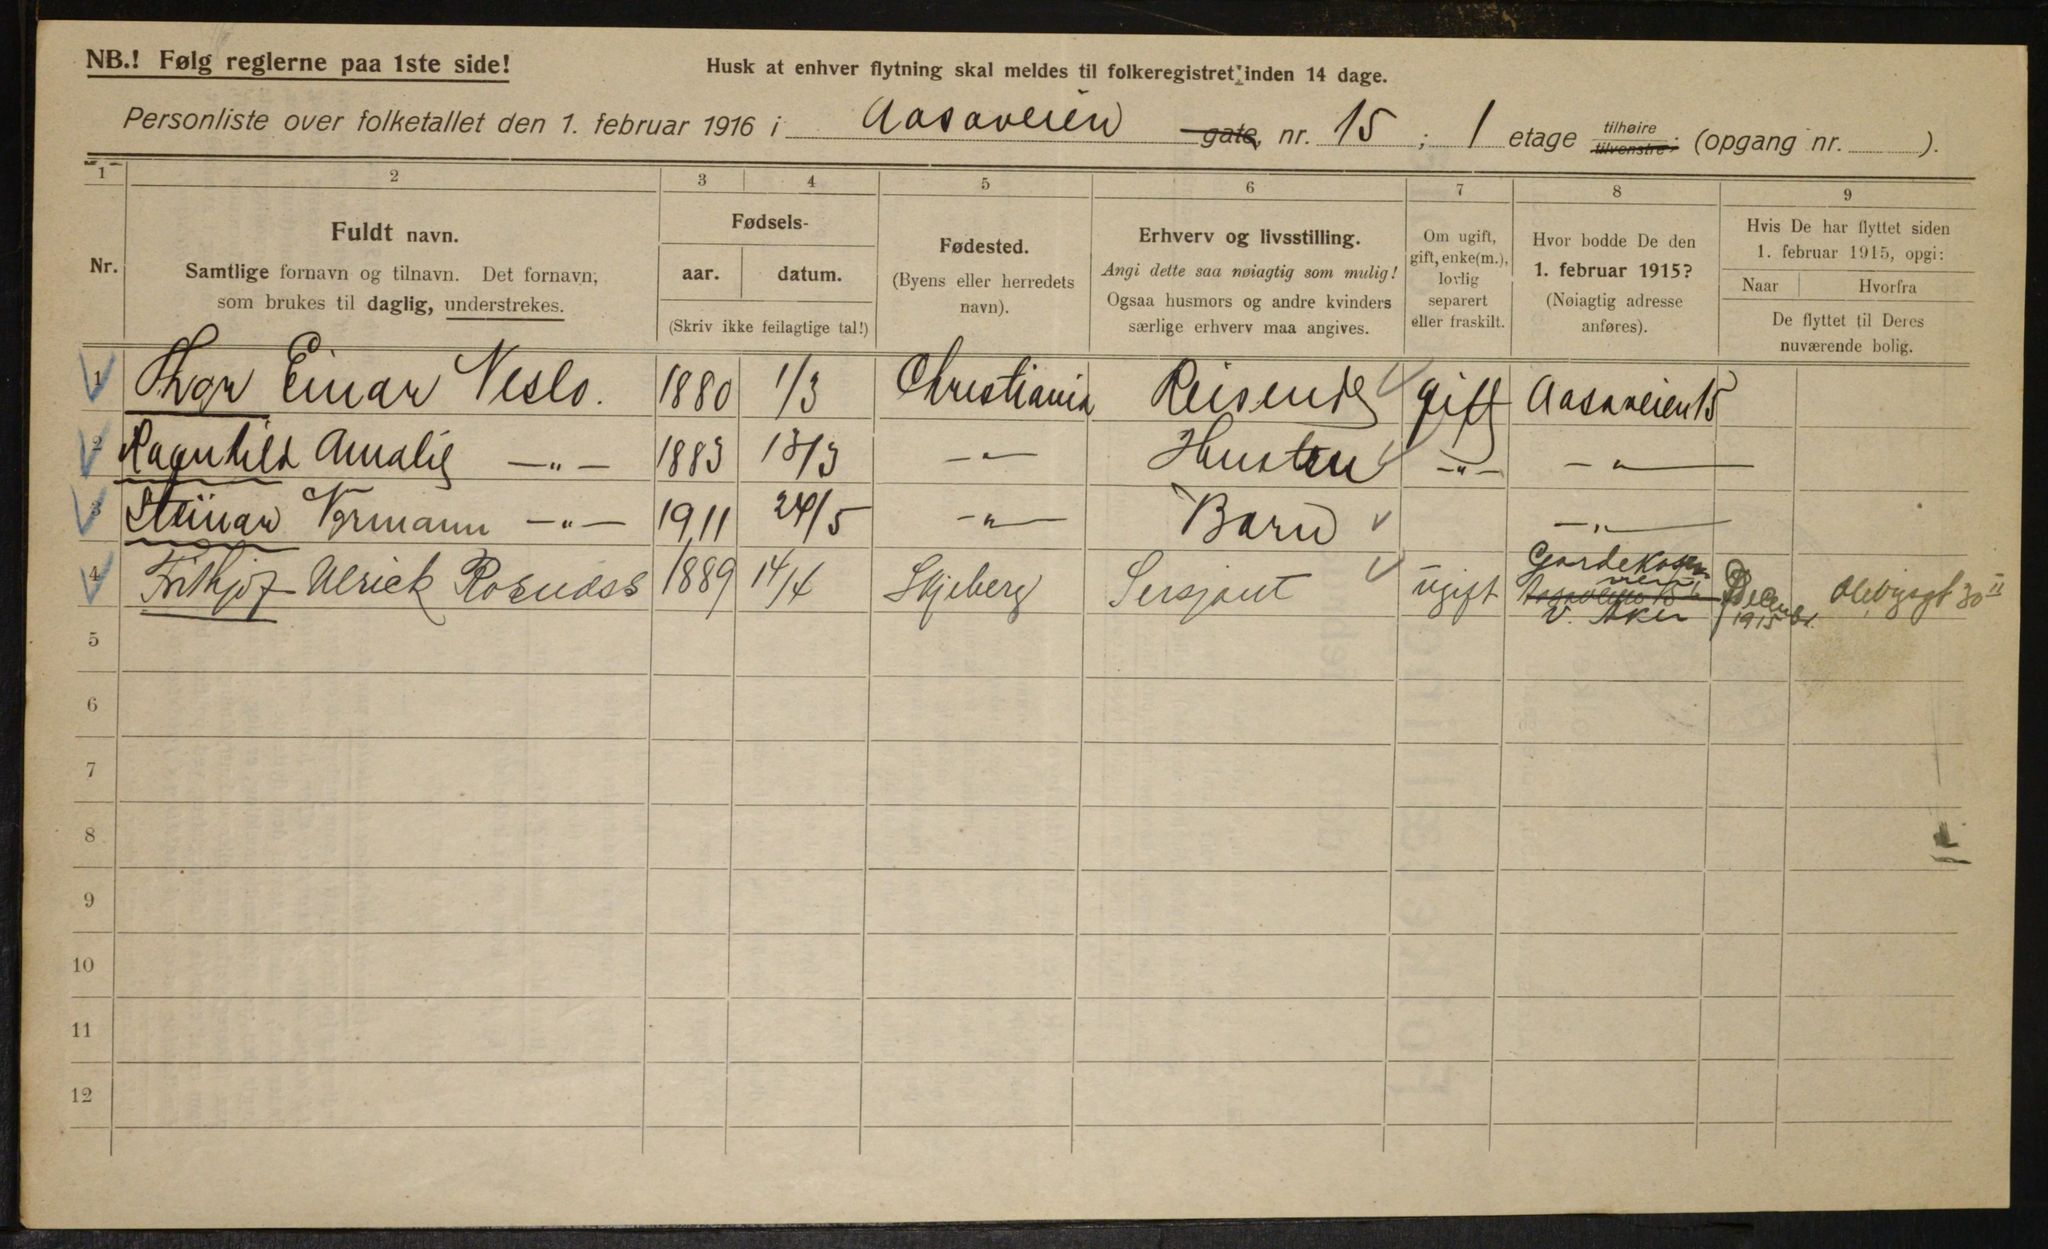 NB.! Følg reglerne paa 1ste side!
Husk at enhver flytning skal meldes til folkeregistret inden 14 dage.
Personliste over folketallet den 1. februar 1916 i Aasaveien gate, nr. 15 ; 1 etage tilhøire tilvenstre; (opgang nr. ).
1 2 3 4 5 6 7 8 9
Nr.
Fuldt navn.
Samtlige fornavn og tilnavn. Det fornavn,
som brukes til daglig, understrekes.
Fødsels-
aar. datum.
(Skriv ikke feilagtige tal!)
Fødested.
(Byens eller herredets
navn).
Erhverv og livsstilling.
Angi dette saa nøiagtig som mulig!
Ogsaa husmors og andre kvinders
særlige erhverv maa angives.
Om ugift,
gift, enke(m.),
lovlig
separert
eller fraskilt.
Hvor bodde De den
1. februar 1915?
(Nøiagtig adresse
anføres).
Hvis De har flyttet siden
1. februar 1915, opgi:
Naar Hvorfra
De flyttet til Deres
nuværende bolig.
1 Thor Einar Neslo. 1880 1/3 Christiania Reisende gift Aasaveien 15
2 Ragnhild Amalie —"— 1883 13/3 —"— Hustru —"— —"—
3 Steinar Normann —"— 1911 24/5 —"— Barn —"—
4 Frithjof Ulrick Rosnæss 1889 14/4 Skjeberg Sersjant ugift
Aasaveien 15
V. Aker
1915
30 II
5
6
7
8
9
10
11
12